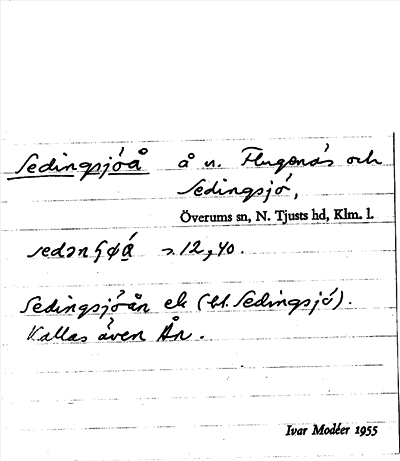 Sedingsjöå å n. Flugenäs och
Sedingsjö,
Överums sn, N. Tjusts hd, Klm. l.
12,40.
Sedingsjöån ek (bl. Sedingsjö).
Kallas även Ån.
Ivar Modéer 1955